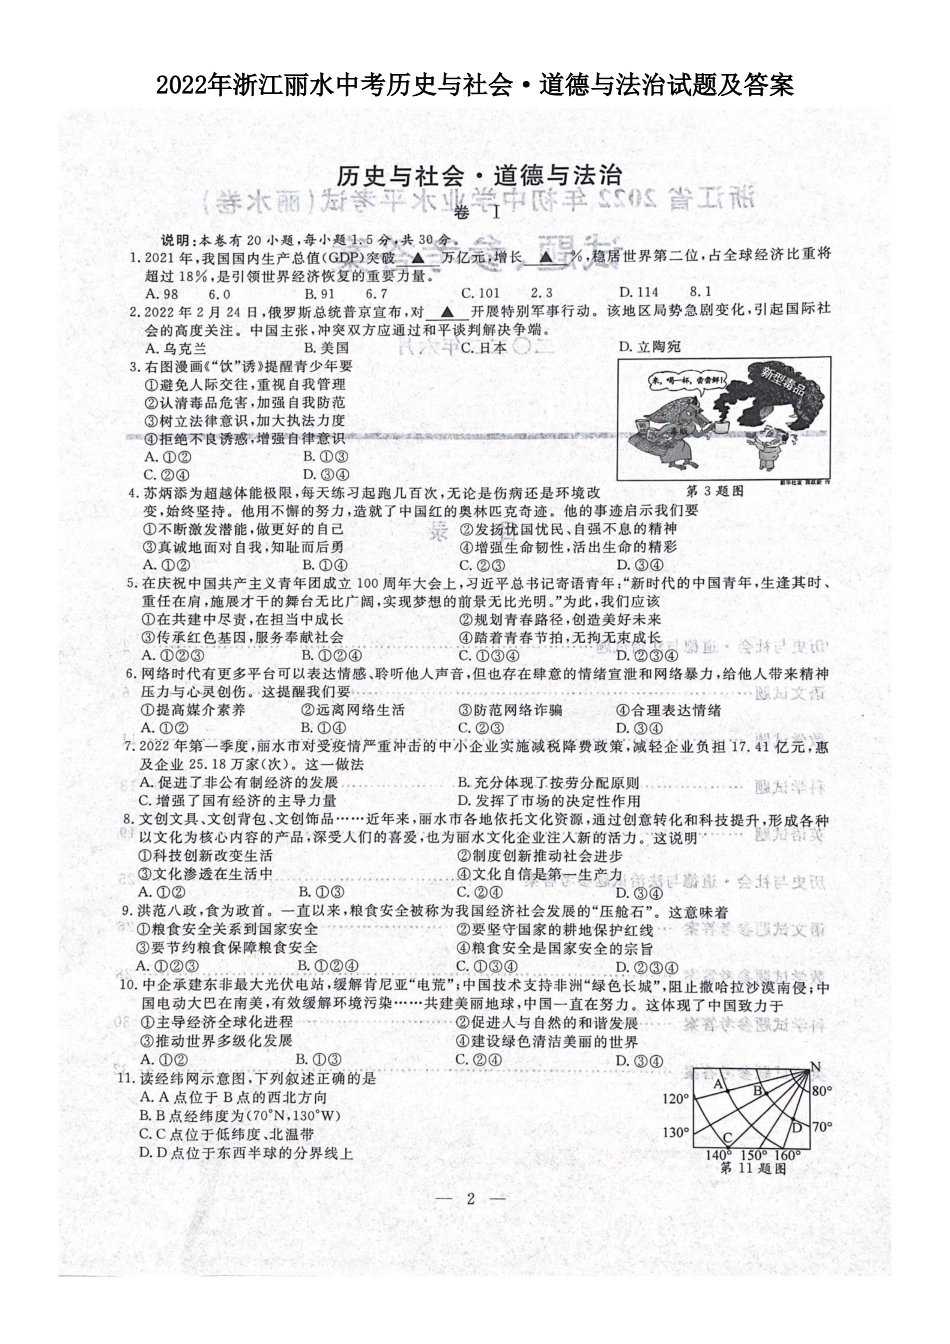 2022年浙江丽水中考历史与社会·道德与法治试题及答案
历史与社会·道德与法治
卷 Ⅰ
说明:本卷有 20 小题,每小题 1.5 分,共 30 分。
1. 2021 年,我国国内生产总值(GDP)突破 ▲ 万亿元,增长 ▲ %,稳居世界第二位,占全球经济比重将
超过 18%,是引领世界经济恢复的重要力量。
A. 98 6.0 B. 91 6.7 C. 101 2.3 D. 114 8.1
2. 2022 年 2 月 24 日,俄罗斯总统普京宣布,对 ▲ 开展特别军事行动。该地区局势急剧变化,引起国际社
会的高度关注。中国主张,冲突双方应通过和平谈判解决争端。
A. 乌克兰 B. 美国 C. 日本 D. 立陶宛
3. 右图漫画《“饮”诱》提醒青少年要
①避免人际交往,重视自我管理
②认清毒品危害,加强自我防范
③树立法律意识,加大执法力度
④拒绝不良诱惑,增强自律意识
A. ①② B. ①③
C. ②④ D. ③④
来,喝一杯,尝尝鲜!
新型毒品
第 3 题图
4. 苏炳添为超越体能极限,每天练习起跑几百次,无论是伤病还是环境改
变,始终坚持。他用不懈的努力,造就了中国红的奥林匹克奇迹。他的事迹启示我们要
①不断激发潜能,做更好的自己 ②发扬忧国忧民、自强不息的精神
③真诚地面对自我,知耻而后勇 ④增强生命韧性,活出生命的精彩
A. ①② B. ①④ C. ②③ D. ③④
5. 在庆祝中国共产主义青年团成立 100 周年大会上,习近平总书记寄语青年:“新时代的中国青年,生逢其时、
重任在肩,施展才干的舞台无比广阔,实现梦想的前景无比光明。”为此,我们应该
①在共建中尽责,在担当中成长 ②规划青春路径,创造美好未来
③传承红色基因,服务奉献社会 ④踏着青春节拍,无拘无束成长
A. ①②③ B. ①②④ C. ①③④ D. ②③④
6. 网络时代有更多平台可以表达情感、聆听他人声音,但也存在肆意的情绪宣泄和网络暴力,给他人带来精神
压力与心灵创伤。这提醒我们要
①提高媒介素养 ②远离网络生活 ③防范网络诈骗 ④合理表达情绪
A. ①② B. ①④ C. ②③ D. ③④
7. 2022 年第一季度,丽水市对受疫情严重冲击的中小企业实施减税降费政策,减轻企业负担 17.41 亿元,惠
及企业 25.18 万家(次)。这一做法
A. 促进了非公有制经济的发展 B. 充分体现了按劳分配原则
C. 增强了国有经济的主导力量 D. 发挥了市场的决定性作用
8. 文创文具、文创背包、文创饰品……近年来,丽水市各地依托文化资源,通过创意转化和科技提升,形成各种
以文化为核心内容的产品,深受人们的喜爱,也为丽水文化企业注入新的活力。这说明
①科技创新改变生活 ②制度创新推动社会进步
③文化渗透在生活中 ④文化自信是第一生产力
A. ①② B. ①③ C. ②④ D. ③④
9. 洪范八政,食为政首。一直以来,粮食安全被称为我国经济社会发展的“压舱石”。这意味着
①粮食安全关系到国家安全 ②要坚守国家的耕地保护红线
③要节约粮食保障粮食安全 ④粮食安全是国家安全的宗旨
A. ①②③ B. ①②④ C. ①③④ D. ②③④
10. 中企承建东非最大光伏电站,缓解肯尼亚“电荒”;中国技术支持非洲“绿色长城”,阻止撒哈拉沙漠南侵;中
国电动大巴在南美,有效缓解环境污染……共建美丽地球,中国一直在努力。这体现了中国致力于
①主导经济全球化进程 ②促进人与自然的和谐发展
③推动世界多级化发展 ④建设绿色清洁美丽的世界
A. ①② B. ①③ C. ②④ D. ③④
11. 读经纬网示意图,下列叙述正确的是
A. A 点位于 B 点的西北方向
B. B 点经纬度为(70°N,130°W)
C. C 点位于低纬度、北温带
D. D 点位于东西半球的分界线上
N
A
B
80°
120°
D
70°
130°
C
140° 150° 160°
第 11 题图
— 2 —